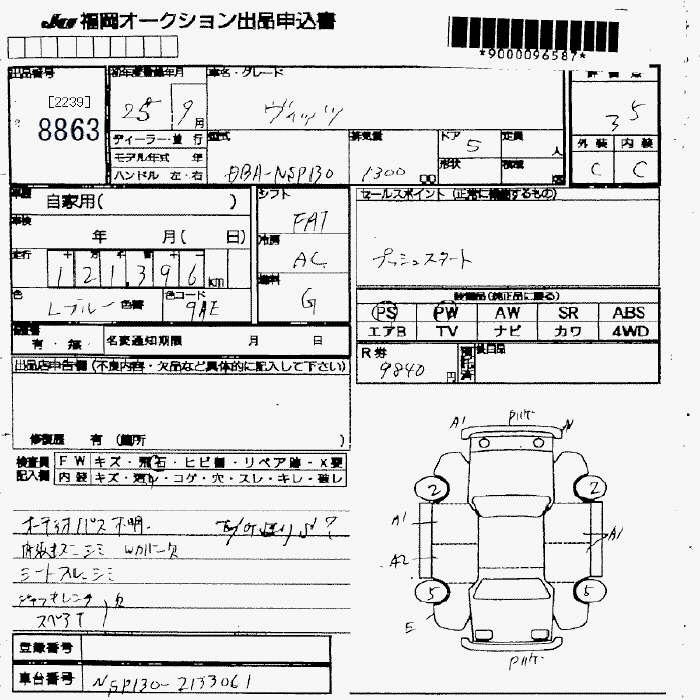 JU 福岡オークション出品申込書
*9000096587*
出品番号 初年度登録年月 車名・グレード 評価点
[2239]
8863
25年 9月 ヴィッツ 3.5
ディーラー・並行 型式 排気量 ドア 5 定員 人 外装 内装
モデル年式 年 形状 積載
ハンドル 左・右 DBA-NSP130 1300 cc C C
車歴 自家用( ) シフト FAT セールスポイント (正常に機能するもの)
車検 年 月( 日) 冷房 AC プッシュスタート
走行 十 万 千 百 十 一
121,396 km 燃料 G
色 Lブルー 色替 色コード 9AE 装備品(純正品に限る)
PS PW AW SR ABS
エアB TV ナビ カワ 4WD
有・無 名変通知期限 月 日
R券 9840円 預託済 後日品
出品店申告欄 (不良内容・欠品など具体的に記入して下さい)
修復歴 有 (箇所 )
検査員 FW キズ・飛石・ヒビ・リペア跡・X要
記入欄 内装 キズ・汚れ・コゲ・穴・スレ・キレ・破レ
オーディオパス不明
シートスレ シミ
ジャッキレンチ 欠
スペアT
A1 N
2 2
A1 A1
A2
5 5
E
登録番号
車台番号 NSP130-2133061